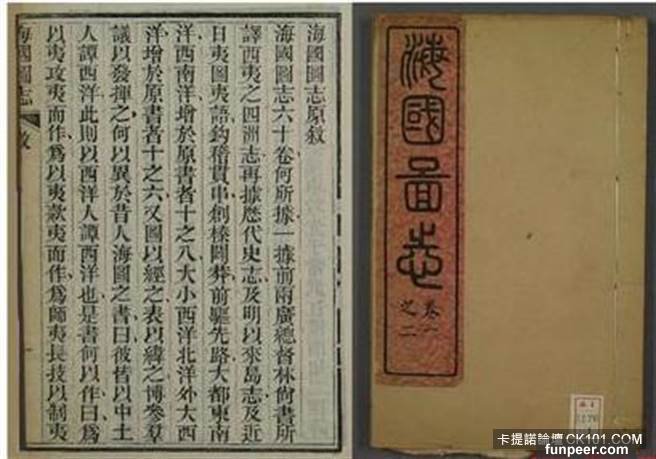 海國圖志原敘
海國圖志六十卷何所據一據前兩廣總督林尚書所
譯西夷之四洲志再據歷代史志及明以來島志及近
日夷圖夷語鈎稽貫串創榛闢莽前驅先路大都東南
洋西南洋增於原書者十之八大小西洋北洋外大西
洋增於原書者十之六又圖以經之表以緯之博參羣
議以發揮之何以異於昔人海圖之書曰彼皆以中土
人譚西洋此則以西洋人譚西洋也是書何以作曰爲
以夷攻夷而作爲以夷款夷而作爲師夷長技以制夷
海國圖志 敘
海國圖志
卷一
之二
卡提諾論壇CK101.COM
funpeer.com